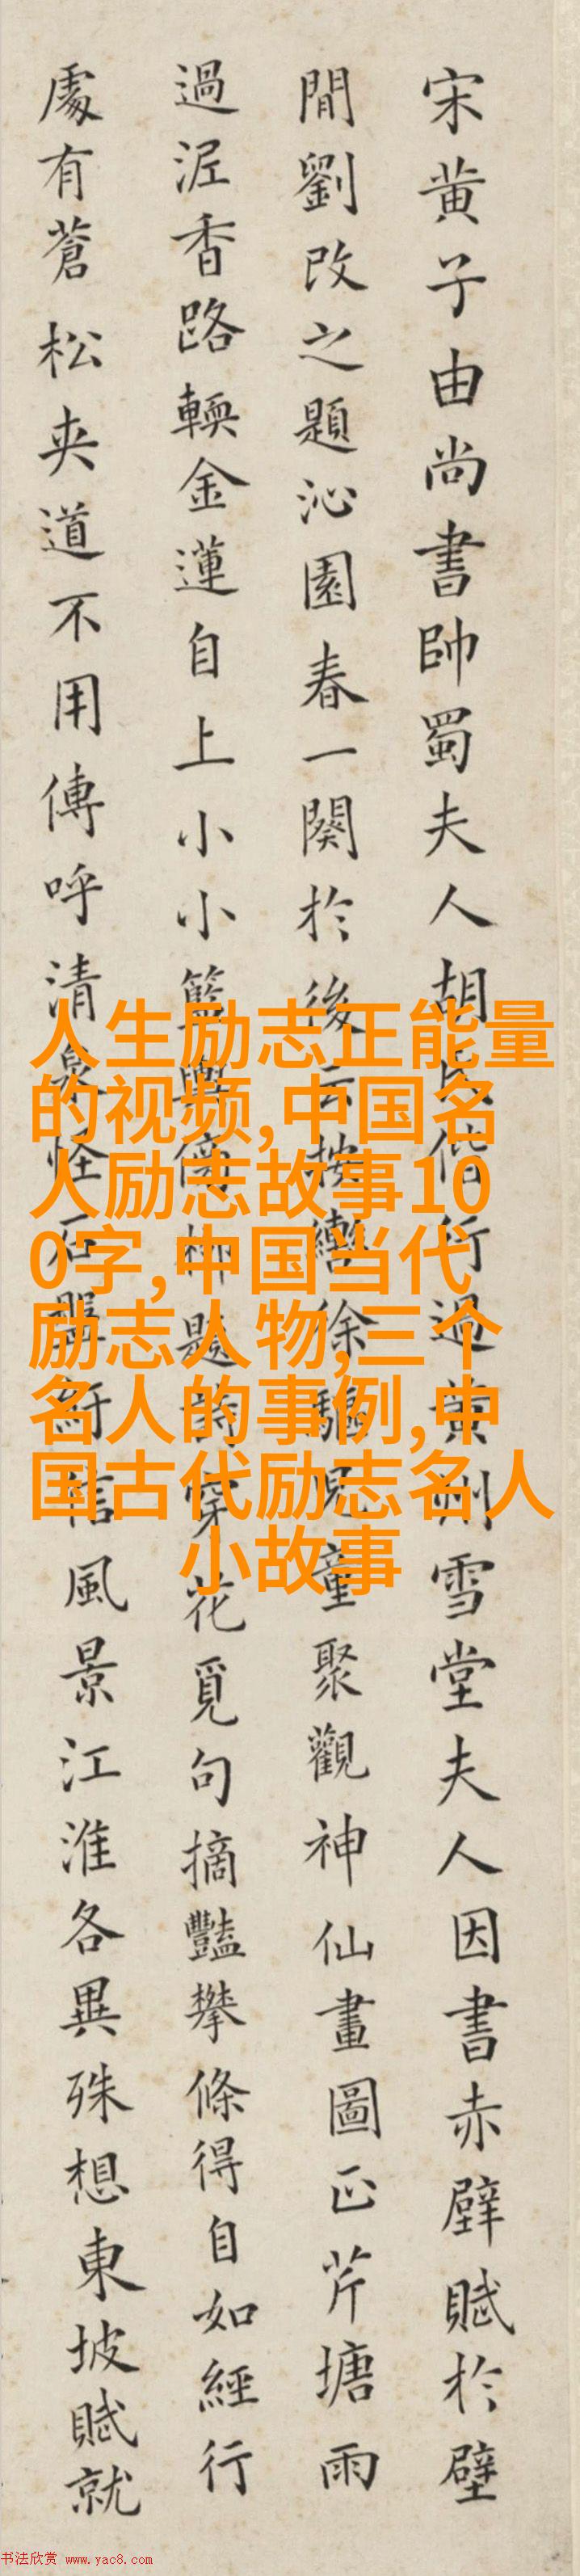 宋黄子由尚書帥蜀夫人胡氏偕行過黄州雪堂夫人因書赤壁賦於壁
間劉改之題沁園春一闋於後云按轡徐驅兒童聚觀神仙畫圖正芹塘雨
過泥香路輭金蓮自上小小籃輿傍柳題詩穿花覓句摘豔攀條得自如經行
處有蒼松夾道不用傳呼清泉怪石盤紆信風景江淮各異殊想東坡賦就
人生励志正能量
的视频,中国名
人励志故事10
0字,中国当代
励志人物,三个
名人的事例,中
国古代励志名人
小故事
书法欣赏 www.yac8.com